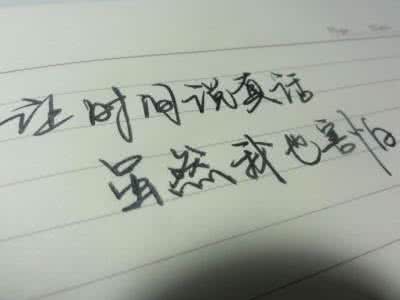 让时间说真话
虽然我也害怕